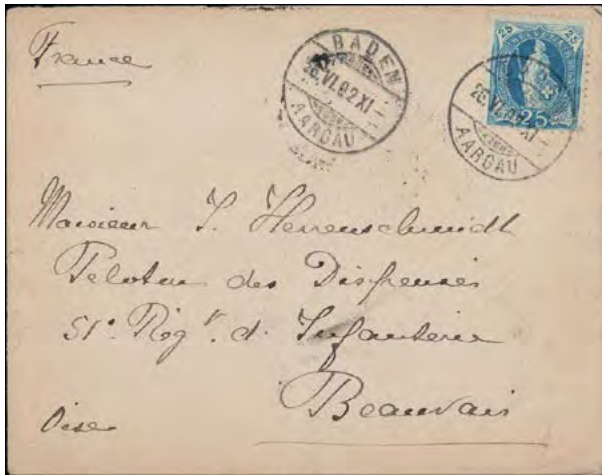 France
BADEN
26.VI.02 XI
AARGAU
25 25
25
26.VI. XI
AARGAU
Monsieur J. Herrenschmidt
Peloton des Dispensés
51e Regt d. Infanterie
Beauvais
Oise